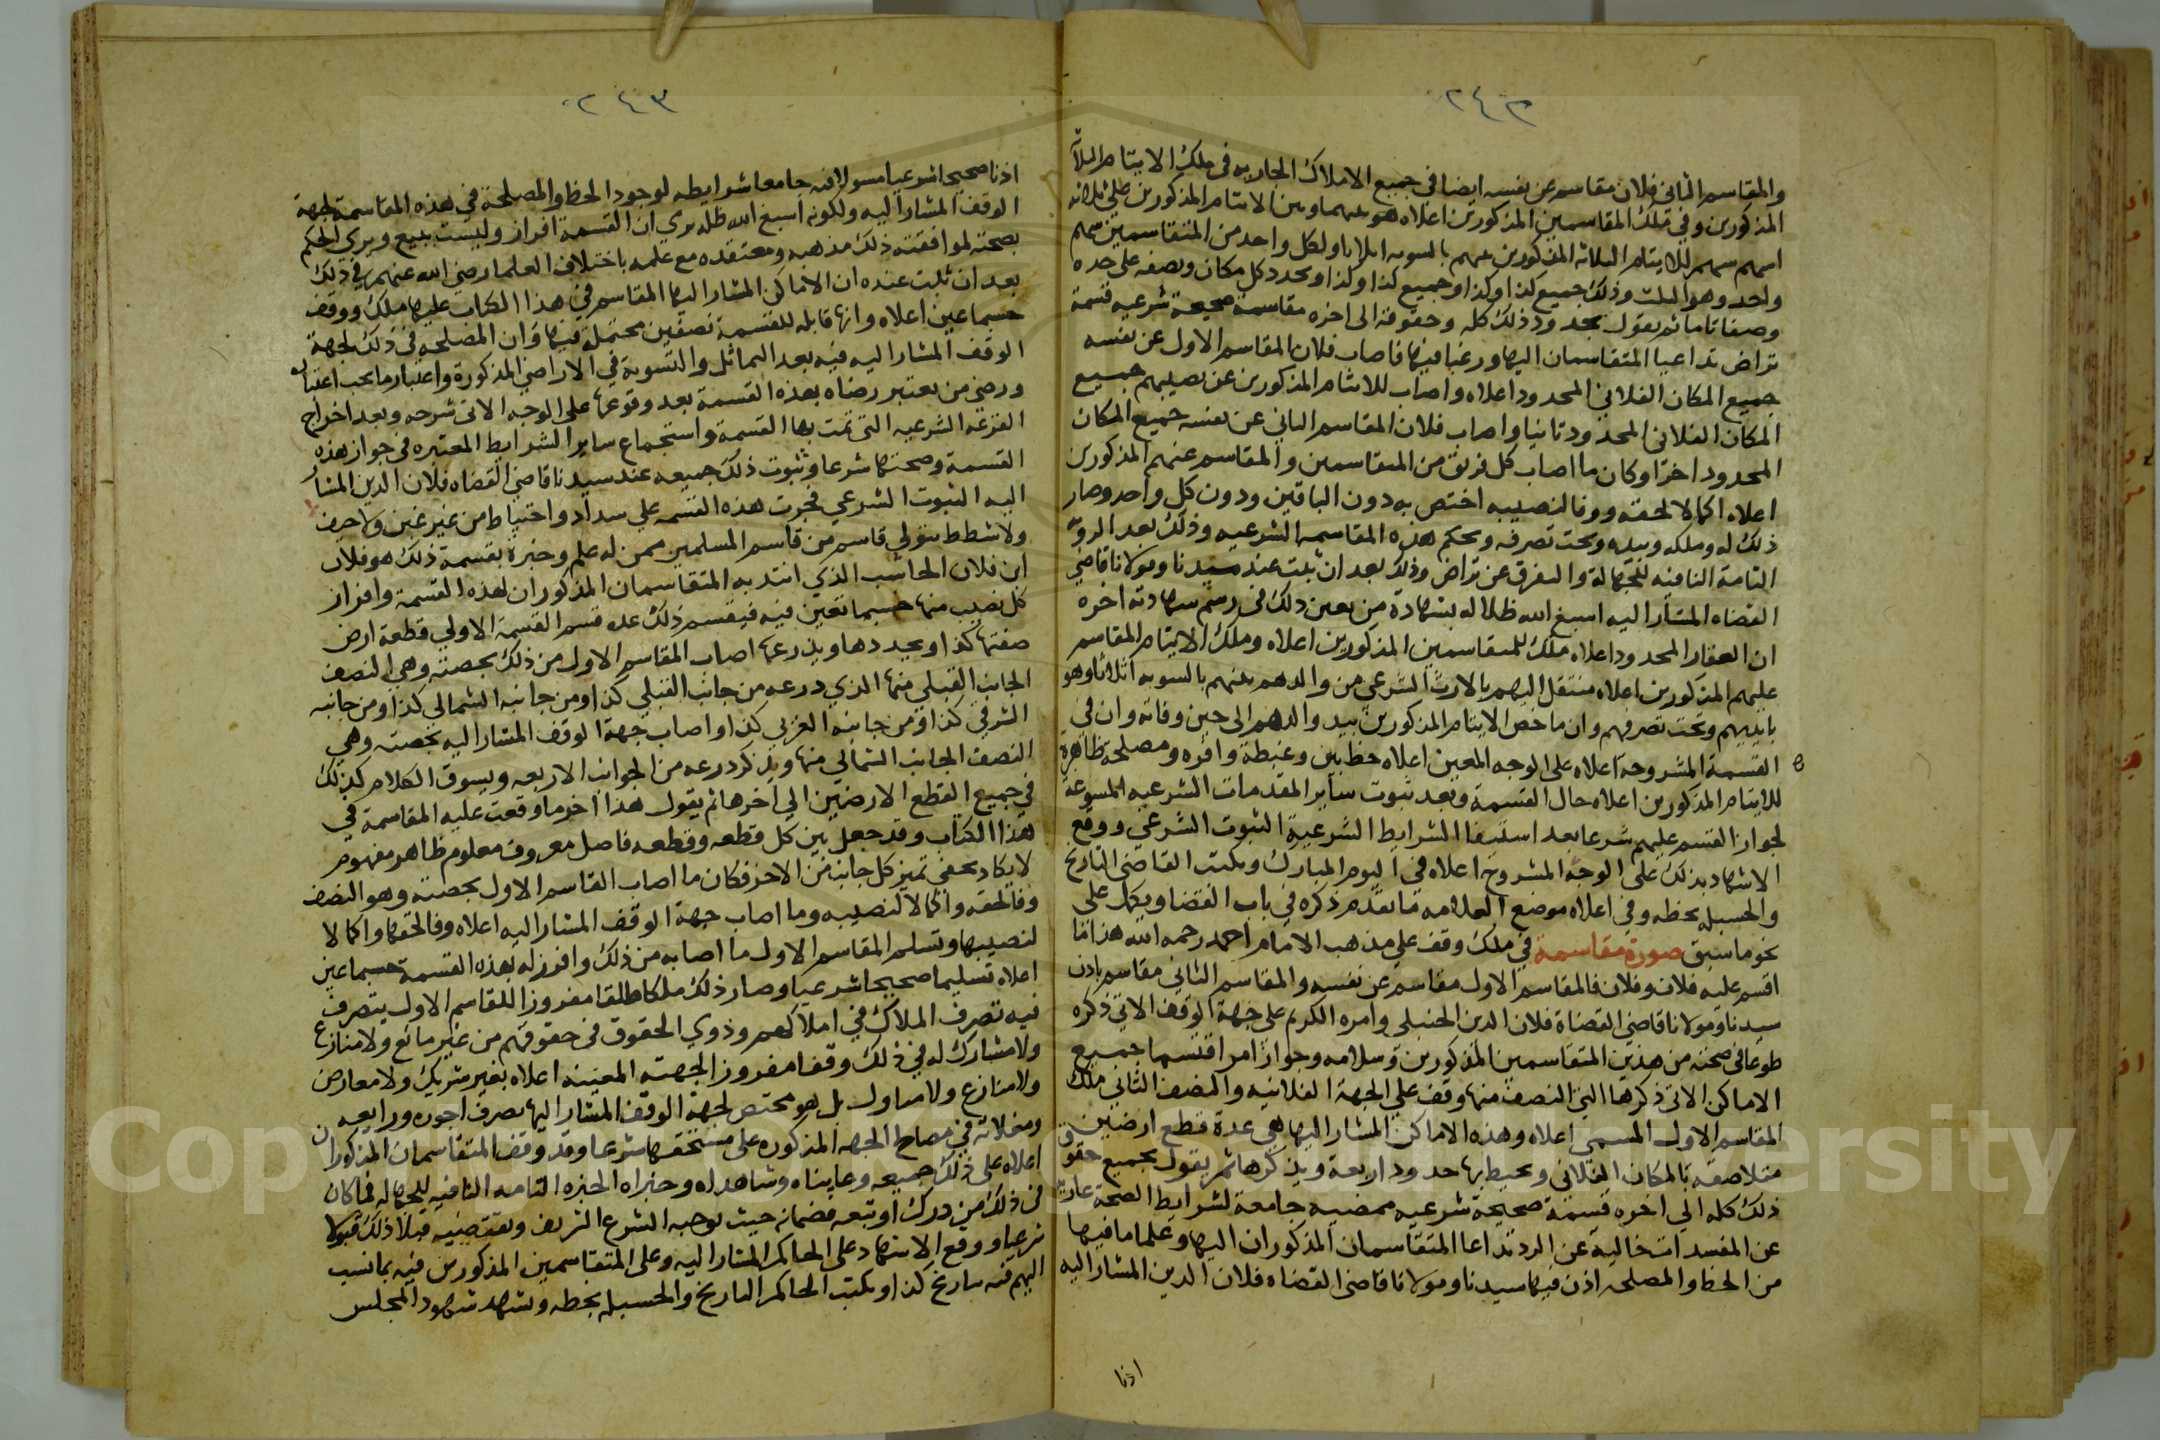 ٢٤٢
والمقاسم الثانى فلان مقاسم عن نفسه ايضا في جميع الاملاك الجاريه فى ملك الايتام الثلاثة
المذكورين وفي ملك المقاسمين المذكورين اعلاه هو بينهما وبين الايتام المذكورين على ثلاثه
اسهم سهم للايتام الثلاثه المذكورين بينهم بالسويه اثلاثا ولكل واحد من المتقاسمين سهم
واحد وهو الثلث وذلك جميع كذا وكذا وجميع كذا وكذا ويحدد كل مكان ويصفه على حده
وصفا تاما ثم يقول بحدود ذلك كله وحقوقه الى اخره مقاسمة صحيحة شرعيه قسمة
تراض تداعيا المتقاسمان اليها ورغبا فيها فاصاب فلان المقاسم الاول عن نفسه
جميع المكان الفلاني المحدود اعلاه واصاب للايتام المذكورين عن نصيبهم جميع
المكان الفلاني المحدود ثانيا واصاب فلان المقاسم الثاني عن نفسه جميع المكان
المحدود اخرا وكان ما اصاب كل فريق من المتقاسمين والمقاسم عنهم المذكورين
اعلاه اكمالا لحقه ووفا لنصيبه اختص به دون الباقين ودون كل واحد وصار
ذلك له وملكه وبيده وتحت تصرفه وبحكم هذه المقاسمه الشرعيه وذلك بعد الرويه
التامة النافيه للجهالة والتفرق عن تراض وذلك بعد ان ثبت عند سيدنا ومولانا قاضي
القضاه المشار اليه اسبغ الله ظلاله بشهادة من يعين ذلك فى رسم شهادته اخره
ان العقار المحدود اعلاه ملك للمتقاسمين المذكورين اعلاه وملك الايتام المقاسم
عليهم المذكورين اعلاه منتقل اليهم بالارث الشرعي من والدهم بينهم بالسويه اثلاثا وهو
بايديهم وتحت تصرفهم وان ما خص الايتام المذكورين بيد والدهم الى حين وفاته وان في
القسمة المشروحة اعلاه على الوجه المعين اعلاه حظ بين وغبطة وافره ومصلحة ظاهرة
للايتام المذكورين اعلاه حال القسمة وبعد ثبوت ساير المقدمات الشرعيه المسوغة
لجواز القسم عليهم شرعا بعد استيفا الشرايط الشرعية الثبوت الشرعي ووقع
الاشهاد بذلك على الوجه المشروح اعلاه في اليوم المبارك ويكتب القاضى التاريخ
والحسبله بخطه وفي اعلاه موضع العلامه ما تقدم ذكره في باب القضا ويكمل على
نحو ما سبق صورة مقاسمة في ملك وقف علي مذهب الامام احمد رحمه الله هذا ما
اقسم عليه فلان وفلان فالمقاسم الاول مقاسم عن نفسه والمقاسم الثاني مقاسم باذن
سيدنا ومولانا قاضي القضاة فلان الدين الحنبلى وامره الكريم على جهة الوقف الاتي ذكره
طوعا في صحة من هذين المتقاسمين المذكورين وسلامه وجواز امر اقتسما جميع
الاماكن الاتى ذكرها التي النصف منها وقف علي الجهة الفلانيه والنصف الثاني ملك
المقاسم الاول المسمى اعلاه وهذه الاماكن المشار اليها هي عدة قطع ارضين
متلاصقه بالمكان الفلاني ويحيط بها حدود اربعة ويذكرها ثم يقول بجميع حقوق
ذلك كله الي اخره قسمة صحيحة شرعيه ممضيه جامعة لشرايط الصحة عارية
عن المفسدات خالية عن الرد تداعا المتقاسمان المذكوران اليها وعلما ما فيها
من الحظ والمصلحه اذن فيها سيدنا ومولانا قاضى القضاه فلان الدين المشار اليه
اذنا
٢٤٣
اذنا صحيحا شرعيا مسولا فيه جامعا شرايطه لوجود الحظ والمصلحة في هذه المقاسمة لجهة
الوقف المشار اليه ولكونه اسبغ الله ظله يرى ان القسمة افراز وليست ببيع ويرى الحكم
بصحته لموافقته ذلك مذهبه ومعتقده مع علمه باختلاف العلما رضي الله عنهم في ذلك
بعد ان ثبت عنده ان الاماكن المشار اليها المقاسم في هذا الكتاب عليها ملك ووقف
حسبما عين اعلاه وانها قابله للقسمة نصفين محتملة فيها وان المصلحه في ذلك لجهة
الوقف المشار اليه فيه بعد التماثل والتسوية في الاراضي المذكورة واعتبار ما يجب اعتباره
ورضى من يعتبر رضاه بهذه القسمة بعد وقوعها على الوجه الاتى شرحه وبعد اخراج
القرعه الشرعيه التى تمت بها القسمة واستجماع ساير الشرايط المعتبره فى جواز هذه
القسمة وصحتها شرعا وثبوت ذلك جميعه عند سيدنا قاضي القضاه فلان الدين المشار
اليه الثبوت الشرعي فجرت هذه القسمه علي سداد واحتياط من غير غبن ولا حيف
ولا شطط بتولي قاسم من قاسم المسلمين ممن له علم وخبرة بقسمة ذلك هو فلان
ابن فلان الحاسب الذي انتدبه المتقاسمان المذكوران لهذه القسمة وافراز
كل نصيب منها حسبما تعين فيه فيقسم ذلك عده قسم القسمة الاولي قطعة ارض
صفتها كذا ويحددها ويذرعها اصاب المقاسم الاول من ذلك بحصته وهي النصف
الجانب القبلي منها الذي درعه من جانب القبلي كذا ومن جانبه الشمالي كذا ومن جانبه
الشرقي كذا ومن جانبه الغربي كذا واصاب جهة الوقف المشار اليه بحصته وهي
النصف الجانب الشمالي منها ويذكر درعه من الجوانب الاربعه ويسوق الكلام كذلك
في جميع القطع الارضين الي اخرها ثم يقول هذا اخر ما وقعت عليه المقاسمة في
هذا الكتاب وقد جعل بين كل قطعه وقطعه فاصل معروف معلوم ظاهر مفهوم
لا يكاد يخفى تميز كل جانب من الاخر فكان ما اصاب القاسم الاول بحصته وهو النصف
وفا لحقه واكمالا لنصيبه وما اصاب جهة الوقف المشار اليه اعلاه وفا لحقها واكمالا
لنصيبها وتسلم المقاسم الاول ما اصابه من ذلك وافرز له بهذه القسمة حسبما عين
اعلاه تسليما صحيحا شرعيا وصار ذلك ملكا طلقا مفروزا للقاسم الاول يتصرف
فيه تصرف الملاك في املاكهم وذوي الحقوق فى حقوقهم من غير مانع ولا منازع
ولا مشارك له في ذلك وقفا مفروز الجهته المعينه اعلاه بغير شريك ولا معارض
ولا منازع ولا مداول بل هو مختص لجهة الوقف المشار اليها تصرف اجوره وريعه
ومغلاته في مصالح الجهه المذكوره على مستحقها شرعا وقد وقف المتقاسمان المذكوران
اعلاه على ذلك جميعه وعايناه وشاهداه وخبراه الخبره التامه النافيه للجهاله فما كان
فى ذلك من درك او تبعه فضمانه حيث يوجبه الشرع الشريف ويقتضيه قبلا ذلك قبولا
شرعيا ووقع الاشهاد على الحاكم المشار اليه وعلى المتقاسمين المذكورين فيه بما نسب
اليهم فيه بتاريخ كذا ويكتب الحاكم التاريخ والحسبله بخطه ويشهد شهود المجلس